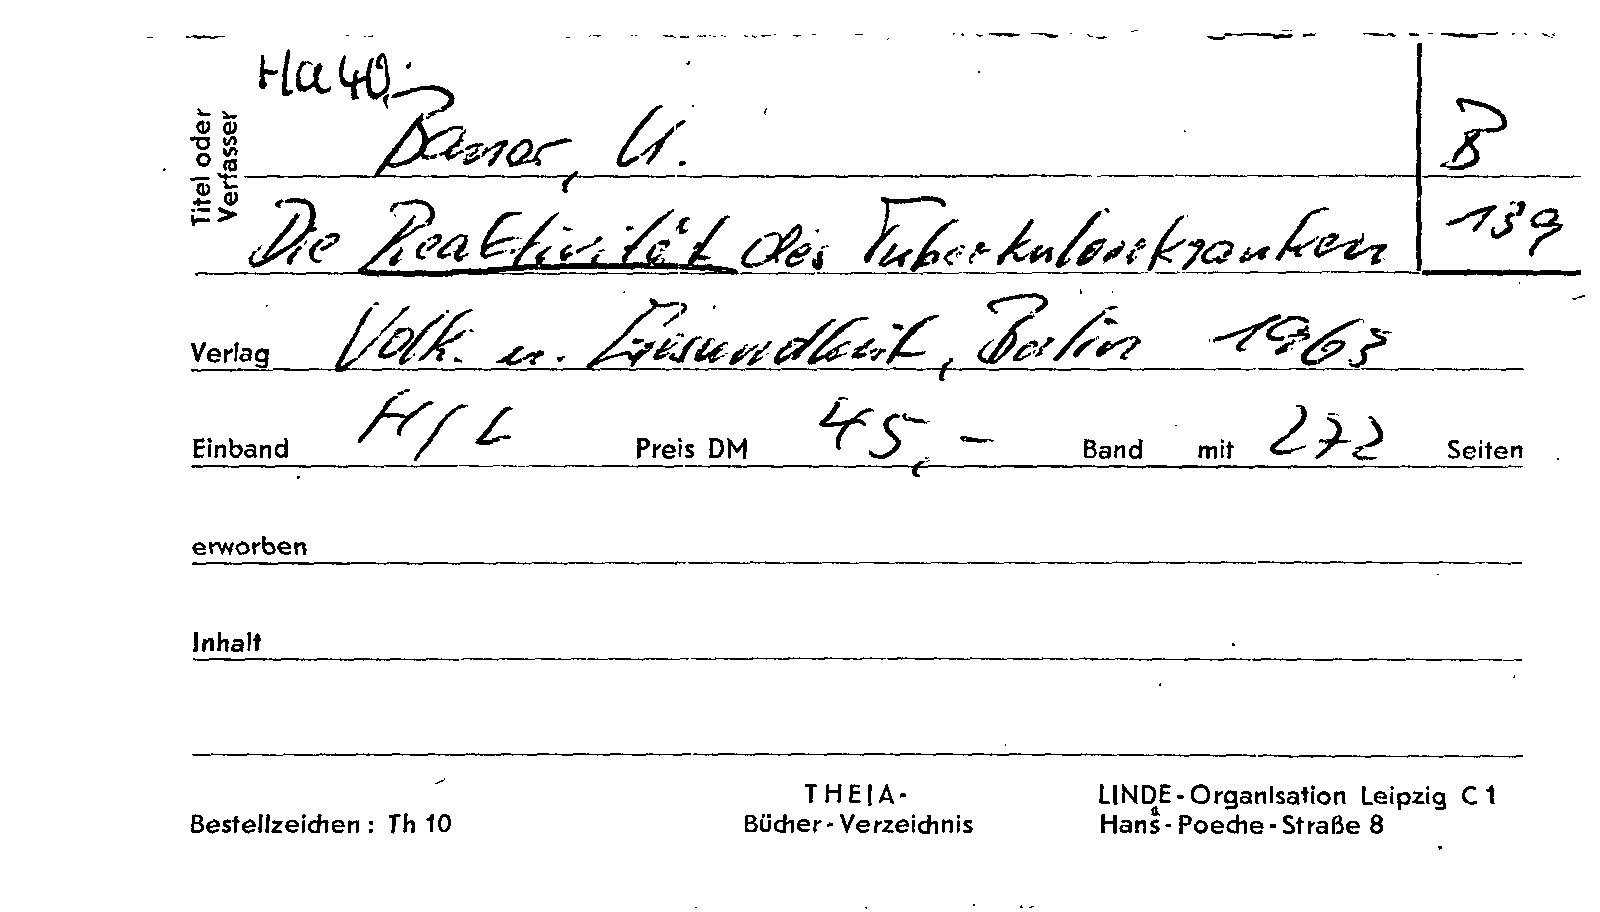 Ha 40
Titel oder
Verfasser
U.
B
Die Reaktivität des Tuberkulosekranken
139
Verlag Volk u. Gesundheit, Berlin 1963
Einband H/L Preis DM 45,- Band mit 272 Seiten
erworben
Inhalt
THEIA- LINDE-Organisation Leipzig C 1
Bestellzeichen: Th 10 Bücher-Verzeichnis Hans-Poeche-Straße 8